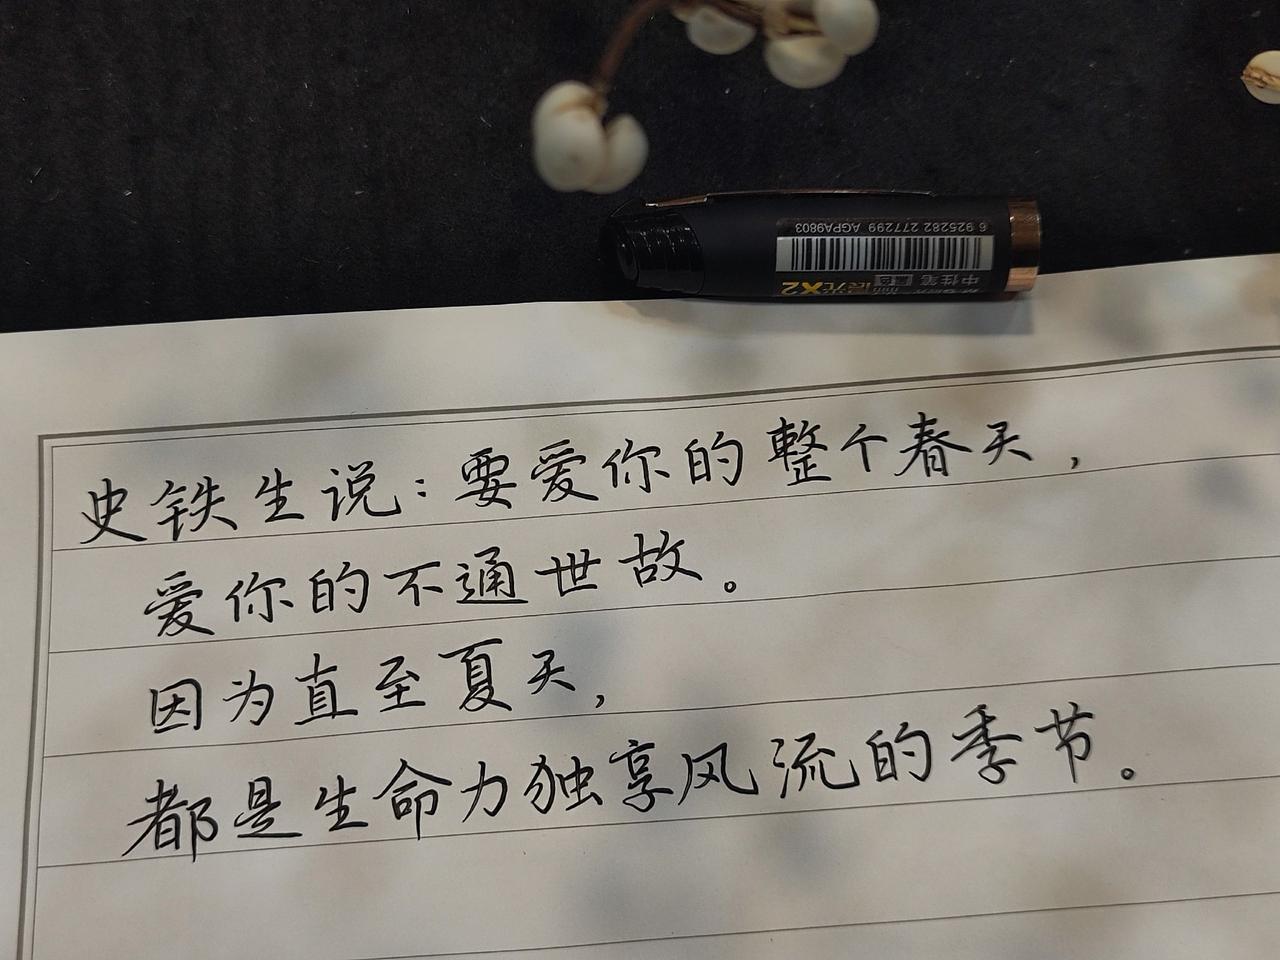 6 925282 277299 AGPA9803
中性笔 黑色
晨光X2
史铁生说：要爱你的整个春天，
爱你的不通世故。
因为直至夏天，
都是生命力独享风流的季节。